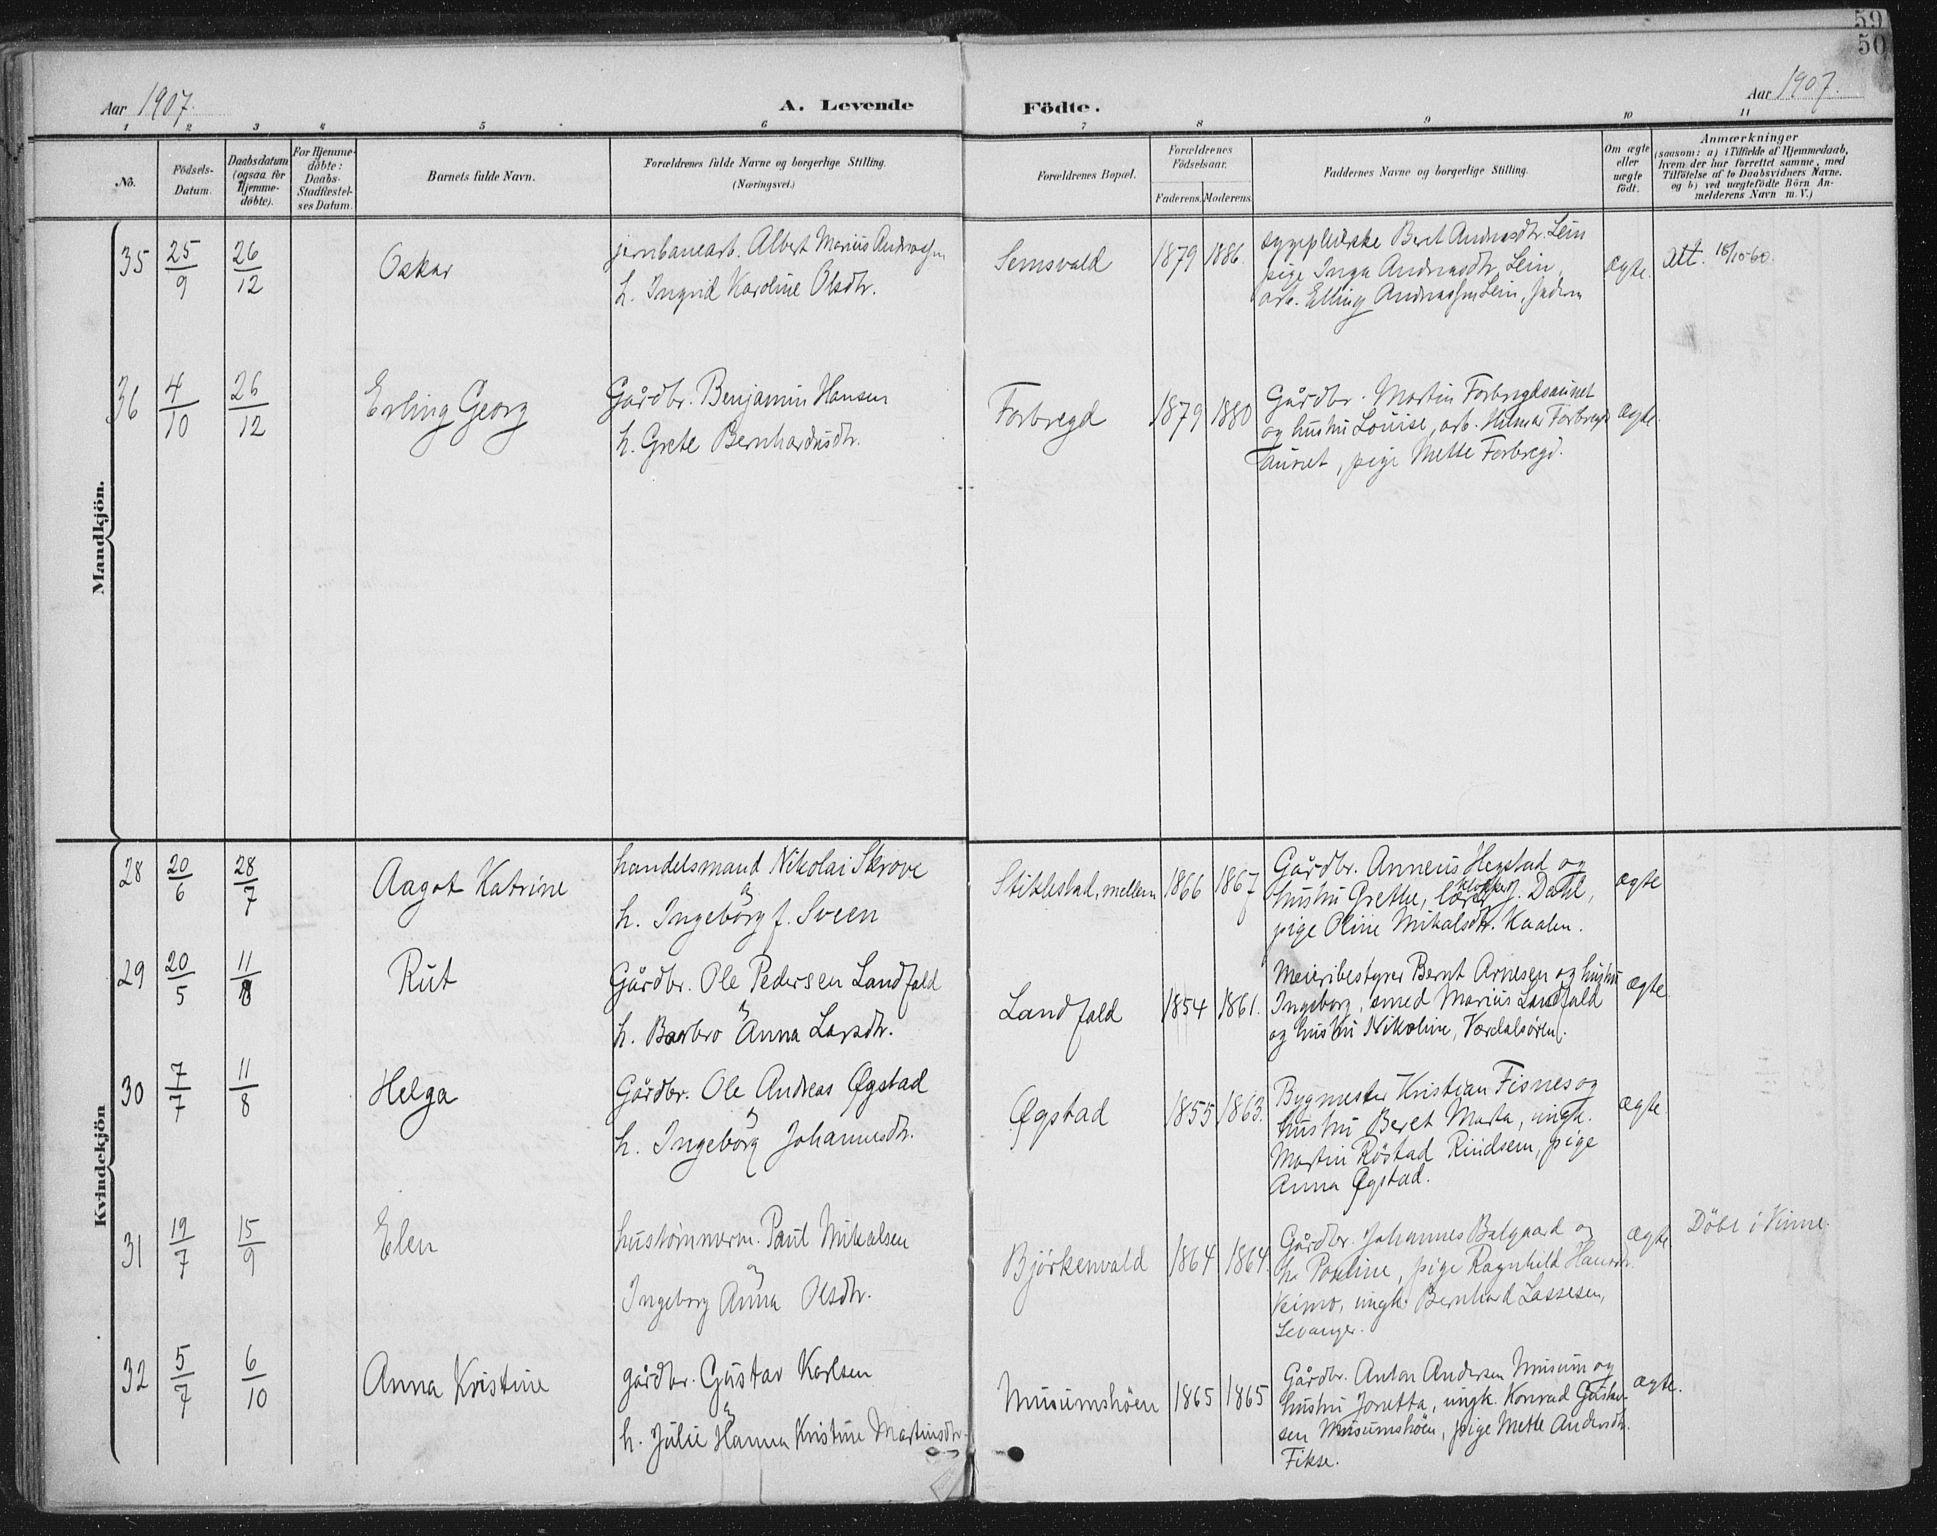 59
50
Aar 1907.
A. Levende Födte.
Aar 1907.
1 2 3 4 5 6 7 8 9 10 11
No.
Födsels-
Datum.
Daabsdatum
(ogsaa for
Hjemme-
døbte).
For Hjemme-
døbte:
Daabs-
Stadfæstel-
ses Datum.
Barnets fulde Navn.
Forældrenes fulde Navne og borgerlige Stilling.
(Næringsvei.)
Forældrenes Bopæl.
Forældrenes
Födselsaar.
Faderens. Moderens.
Faddernes Navne og borgerlige Stilling.
Om ægte
eller
uægte
født.
Anmærkninger
(saasom: a) i Tilfælde af Hjemmedaab,
hvem der har forrettet samme, med
Tilföielse af to Daabsvidners Navne.
og b) ved uægtefödte Börn An-
melderens Navn m. V.)
Mandkjön.
35 25/9 26/12 Oskar
jernbanearb. Albert Marius Andreassen
h. Ingrid Karoline Olsdtr.
Semsvald 1879 1886.
sygepleierske Beret Andreasdtr. Lein
pige Inga Andreasdtr. Lein,
arb. Elling Andreassen Lein,
ægte. Att. 18/10-60.
36 4/10 26/12 Erling Georg
Gårdbr. Benjamin Hansen
h. Grete Bernhardusdtr.
Forbregd 1879 1880
Gårdbr. Martin Forbregdsaunet
og hustru Louise, arb. Hilmar Forbregds-
aunet, pige Mette Forbregd.
ægte.
Kvindekjön
28 20/6 28/7 Aagot Katrine
handelsmand Nikolai Skrove
h. Ingeborg f. Sveen
Stiklestad, mellem 1866 1867
Gårdbr. Anneus Hegstad og
hustru Grethe, J. Dahl,
pige Oline Mikalsdtr. Kaalen.
ægte
29 20/5 11/8 Rut
Gårdbr. Ole Pedersen Landfald
h. Barbro Anna Larsdtr.
Landfald 1854 1861.
Meieribestyrer Bernt Arnesen og hustru
Ingeborg, smed Marius Landfald
og hustru Nikoline, Værdalsøren.
ægte
30 7/7 11/8 Helga
Gårdbr. Ole Andreas Øgstad
h. Ingeborg Johannesdtr.
Øgstad 1855 1863.
Bygmester Kristian Fisnes og
hustru Beret Marta, ungk.
Martin Røstad Rindsem, pige
Anna Øgstad.
ægte.
31 19/7 15/9 Elen
hustømmerm. Paul Mikalsen
Ingeborg Anna Olsdtr.
Bjørkenvald 1864 1864.
Gårdbr. Johannes Balgaard og
h. Pauline, pige Ragnhild Hansdtr.
Veimo, ungk. Bernhard Lassesen,
Levanger.
ægte. Döbt i Vinne.
32 5/7 6/10 Anna Kristine
gårdbr. Gustav Karlsen
h. Julie Hanna Kristine Martinsdtr.
Musumshöen 1865 1865
Gårdbr. Anton Andersen Musum og
hustru Jonetta, ungk. Konrad Gustav-
sen Musumshöen, pige Mette Andersdtr.
Fikse.
ægte.